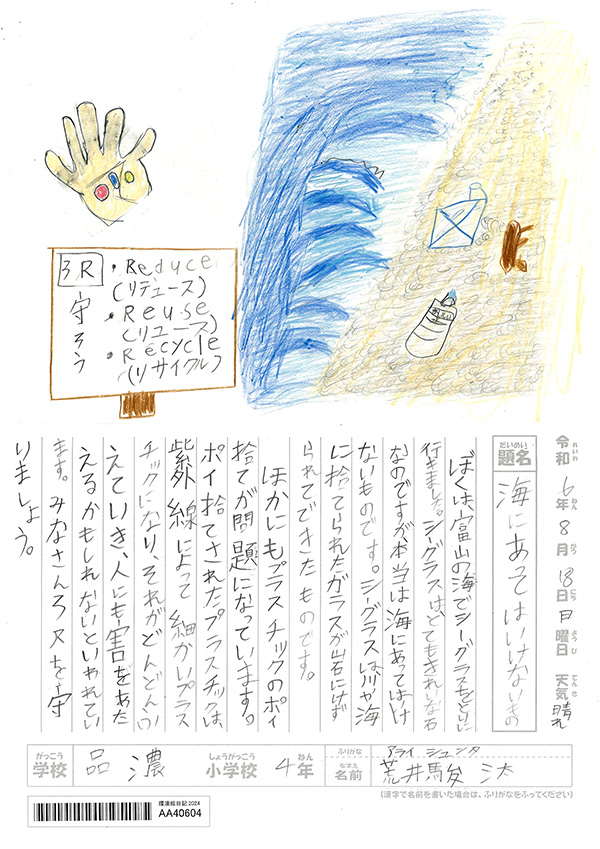 3R
守ろう
・Reduce
(リデュース)
・Reuse
(リユース)
・Recycle
(リサイクル)
令和 れいわ 6年 ねん 8月 がつ 18日 にち 日曜日 ようび 天気 てんき 晴れ
題名 だいめい 海にあってはいけないもの
ぼくは、富山の海でシーグラスをとりに
行きました。シーグラスは、とてもきれいな石
なのですが、本当は海にあってはいけ
ないものです。シーグラスは川や海
に捨てられたガラスが岩にけず
られてできたものです。
ほかにもプラスチックのポイ
捨てが問題になっています。
ポイ捨てされたプラスチックは、
紫外線によって細かいプラス
チックになり、それがどんどんふ
えていき、人にも害をあた
えるかもしれないといわれてい
ます。みなさん3Rを守
りましょう。
学校 がっこう 品濃 小学校 しょうがっこう 4年 ねん
ふりがな アライ シュンタ
名前 なまえ 荒井駿汰
(漢字で名前を書いた場合は、ふりがなをふってください)
環境絵日記2024
AA40604